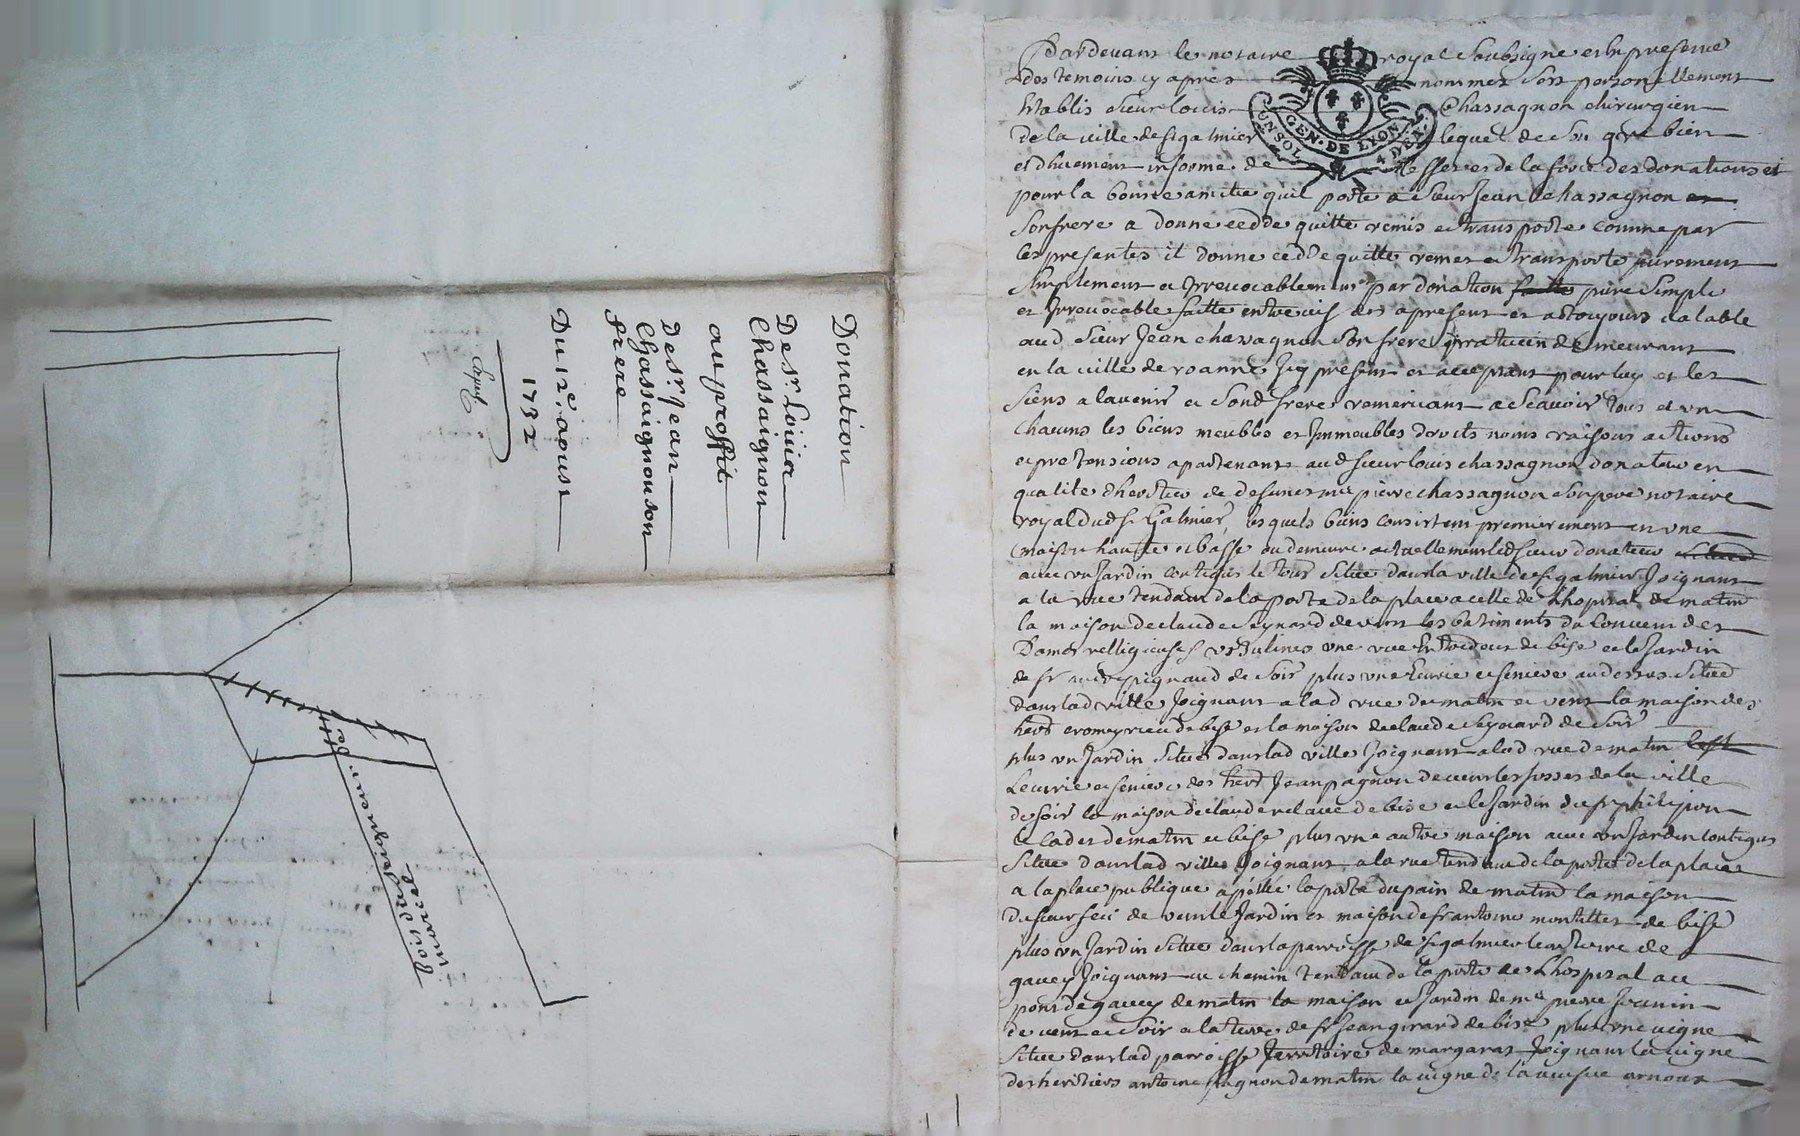 Donation
De sr. Louis
Chassaignon
au proffit
De sr. Jean
Chassaignon son
frere
Du 12e. aoust
1732
bois du seigneur de
marcieu
Pardevant le notaire royal soubsigne et en presence
des temoins cy apres nommez sest personellement
Etablis sieur louis Chassagnon chirurgien
de la ville de st galmier lequel de son gre bien
et dhuement informe de des donations et
pour la bonne amitie quil porte a sieur Jean chassagnon
son frere a donne cedde quitte remis et transporte comme par
les presentes il donne cedde quitte remet et transporte purement
simplement et Irrevocablement par donation pure simple
et Irrevocable faitte entre vifs des apresent et a toujours valable
aud sieur Jean chassagnon son frere praticien demeurant
en la ville de roanne Icy present et acceptant pour luy et les
siens a lavenir et sond frere remerciant a scavoir tous et un
chacuns les biens meubles et Immeubles droits noms raisons actions
et pretensions apartenants aud sieur louis chassagnon donateur en
qualite dheritier de defunct me pierre chassagnon son pere notaire
royal dud st Galmier, lesquels biens consistent premierement en une
maison haulte et basse ou demeure actuellement led sieur donateur
avec un Jardin contigus le tout situe dans la ville de st galmier Joignant
a la rue tendant de la porte de la place a celle de Lhopital de matin
la maison de claude Seynard de vent les batiments du couvent des
Dames relligieuses ursulines une rue entredeux de bise et le Jardin
de sr pignaud de soir plus une Ecurie et feniere au dessus situee
dans lad ville Joignant a lad rue de matin et vent la maison des
de bise et la maison de claude Seynard de soir
plus un Jardin situe dans lad ville Joignant a lad rue de matin
Lecurie et feniere des herit Jean pagnon de vent les fosses de la ville
de soir la maison de claude de bise et le Jardin du sr
de matin et bise plus une autre maison avec un Jardin contigus
situee dans lad ville Joignant a la rue tendant de la porte de la place
a la place publique apellee la porte du pain de matin la maison
du sieur de vent le Jardin et maison de sr antoine montillet de bise
plus un Jardin situe dans la parroisse de st galmier territoire de
gavey Joignant au chemin tendant de la porte de Lhospital au
pont de gavey de matin la maison et Jardin de me pierre Jeanin
de vent et soir a la terre de sr Jean girard de bise plus une vigne
situee dans lad parroisse territoire de margaras Joignant la vigne
des heritiers antoine pagnon de matin la vigne de la veufve
GEN. DE LYON
UN SOL
4 DEN.